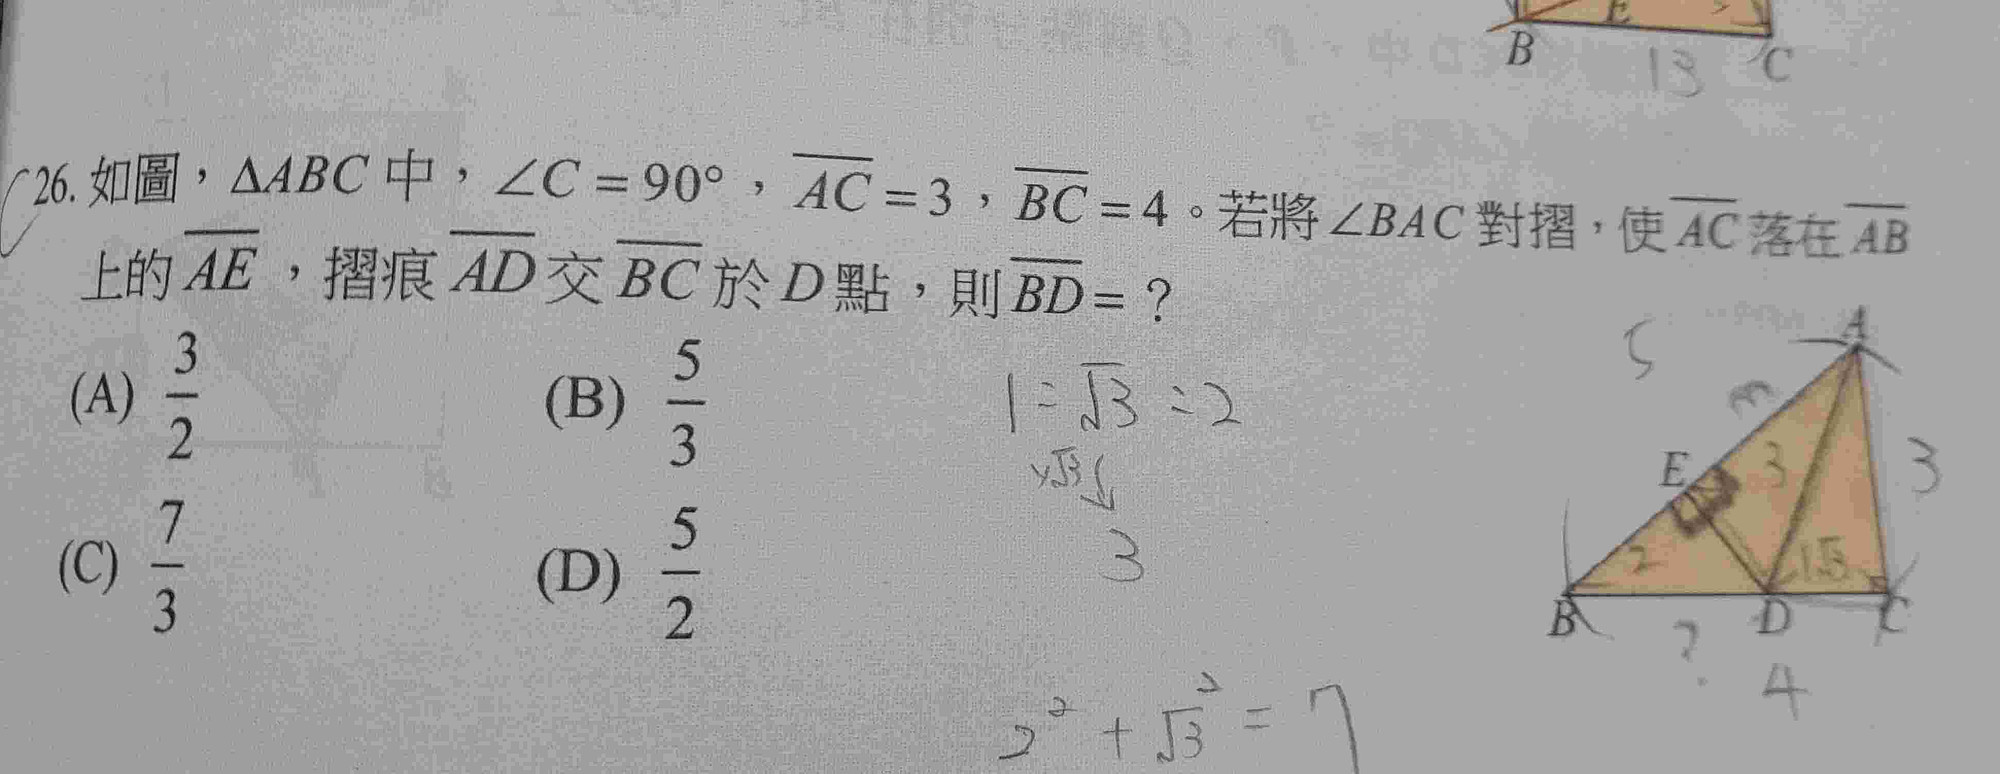 E
B
C
13
26. 如圖，ΔABC 中，∠C = 90°，AC = 3，BC = 4。若將∠BAC對摺，使AC落在AB
上的AE，摺痕AD交BC於D點，則BD = ？
(A) 3/2
(B) 5/3
(C) 7/3
(D) 5/2
1 : √3 : 2
×√3
3
2² + √3² = 7
5
A
3
E
3
3
2
√3
B
D
C
?
4